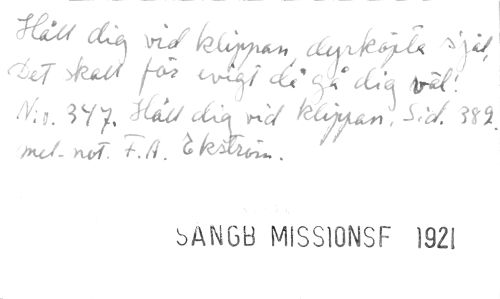 Håll dig vid klippan, dyrköpta själ,
Det skall för evigt då gå dig väl!
N:o. 347. Håll dig vid klippan. Sid. 389.
mel-not. F.A. Ekström.
SANGB MISSIONSF 1921